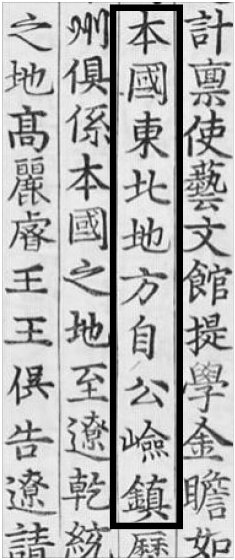 計稟使藝文館提學金瞻如
本國東北地方自公嶮鎮歷
州俱係本國之地至遼乾統
之地高麗睿王王俣告遼請